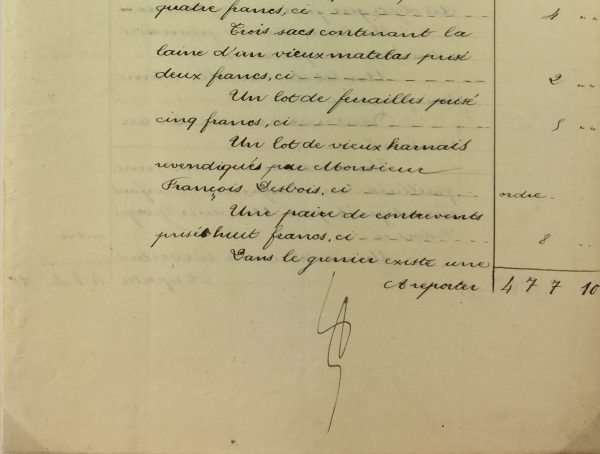 quatre francs, ci 4 "
Trois sacs contenant la
laine d'un vieux matelas prisé
deux francs, ci 2 "
Un lot de ferrailles prisé
cinq francs, ci 5 "
Un lot de vieux harnais
revendiqués par Monsieur
François Desbois, ci ordre
Une paire de contrevents
prisée huit francs, ci 8 "
Dans le grenier existe une
A reporter 477 10